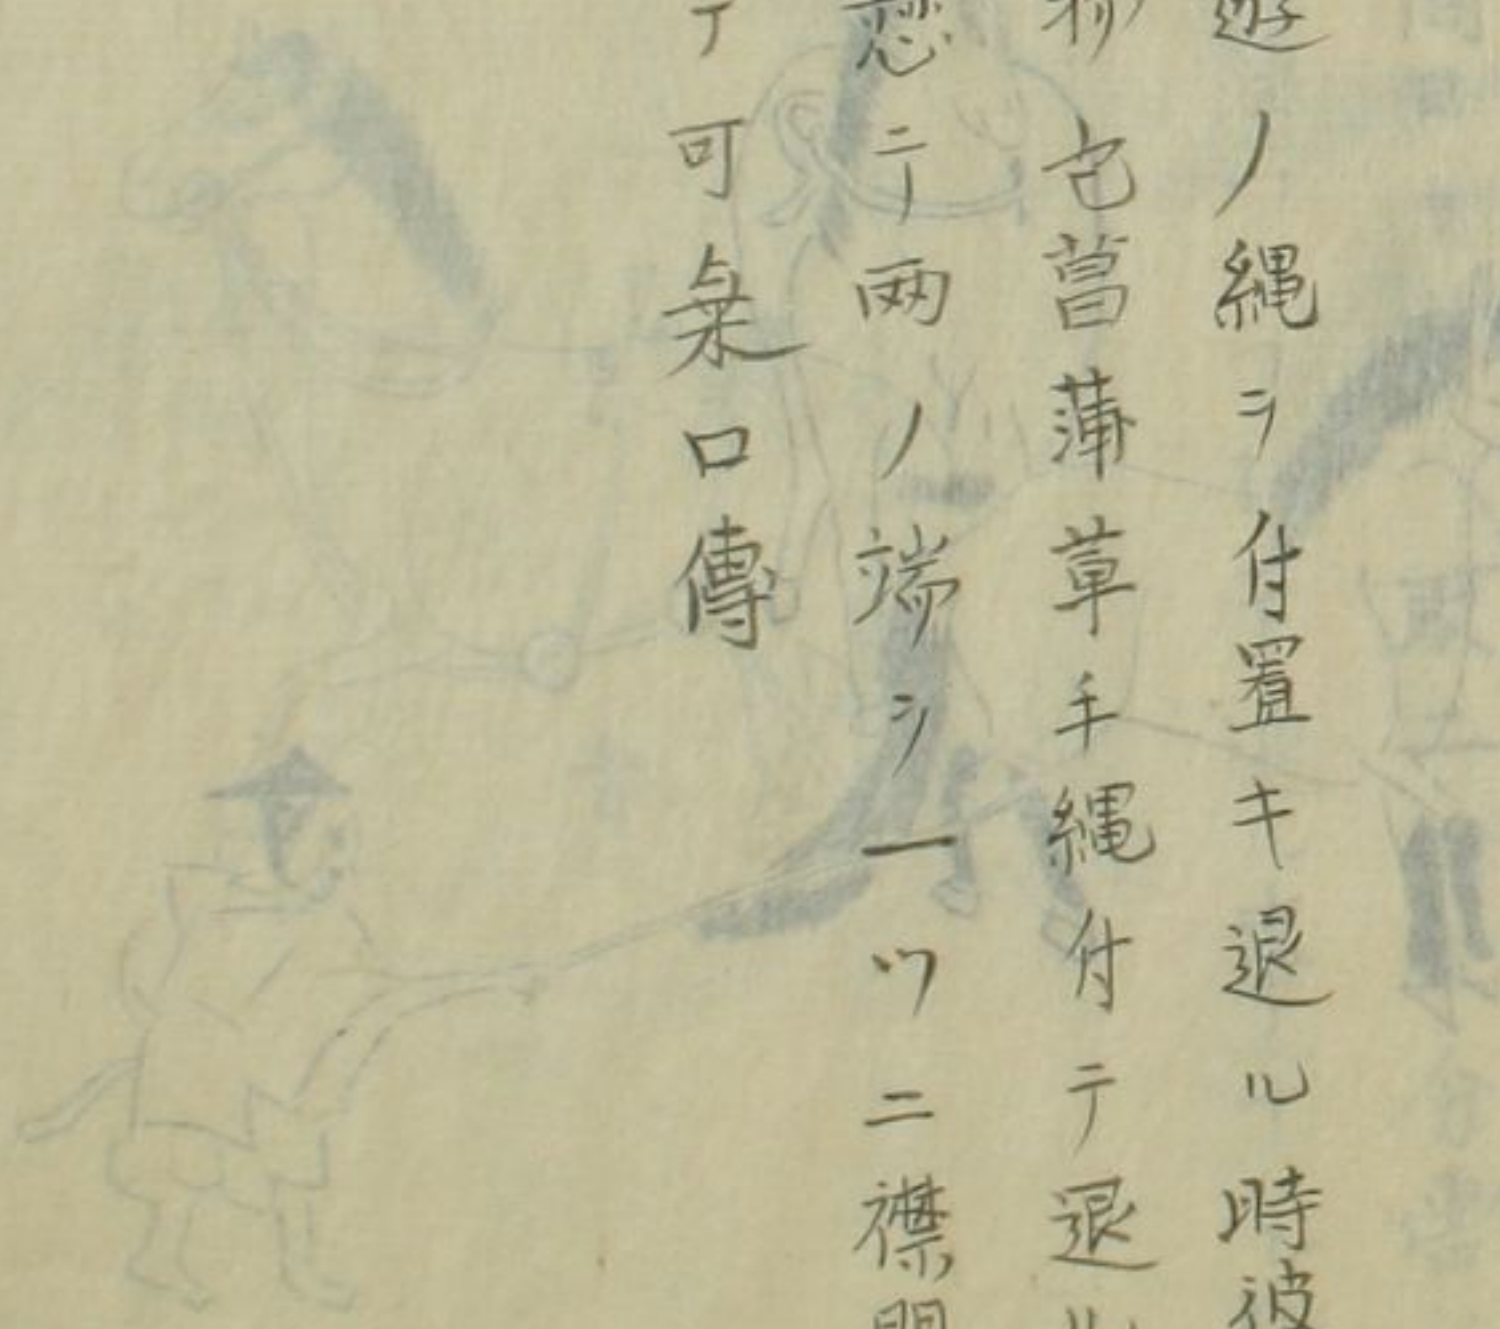 遊ノ縄ヲ付置キ退ル時彼
菖蒲草手縄付テ退ル
テ両ノ端ヲ一ツニ襟
テ可乗口傳